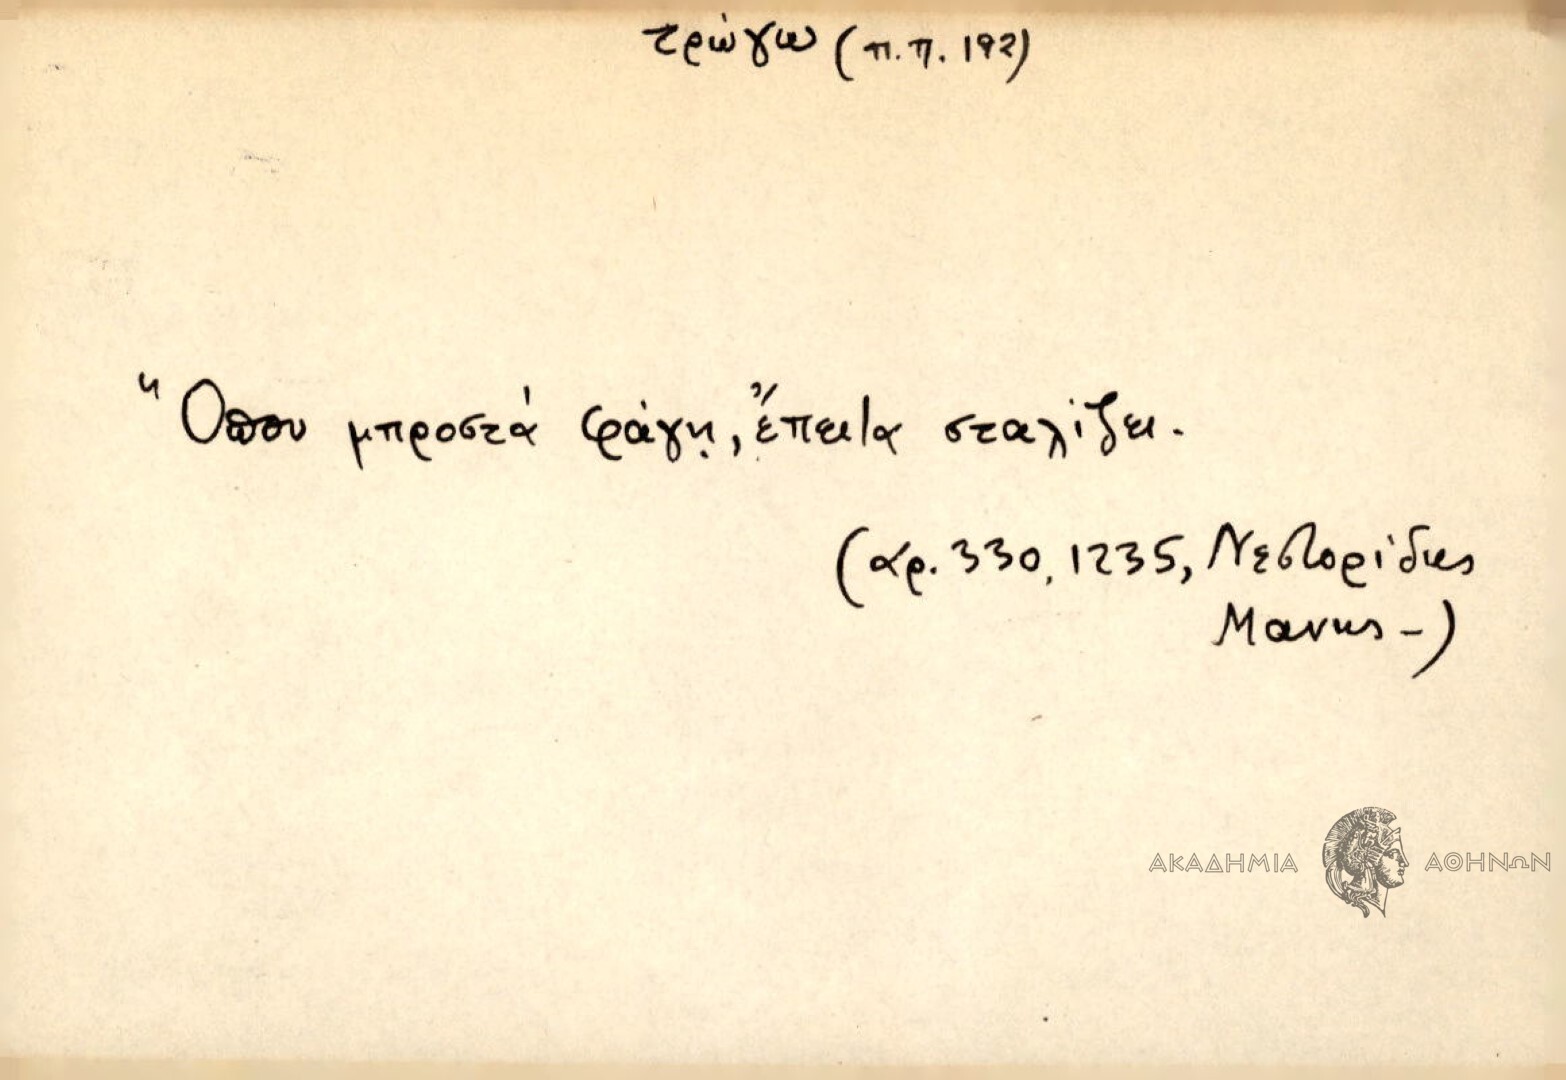 τρώγω (π.π. 192)
Ὅπου μπροστά φάγῃ, ἔπειτα σταλίζει.
(ἀρ. 330, 1235, Νεστορίδης
Μάνης -)
ΑΚΑΔΗΜΙΑ ΑΘΗΝΩΝ